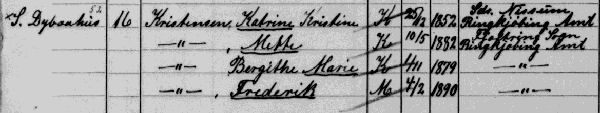 S. Dybauhus 16 Kristensen, Katrine Kristine K 25/12 1852 Sdr. Nissum Ringkjöbing Amt
—"— , Mette K 10/5 1882 Sogn Ringkjöbing Amt
—"— Bergithe Marie K 4/11 1879 —"—
—"— , Frederik M 4/2 1890 —"—